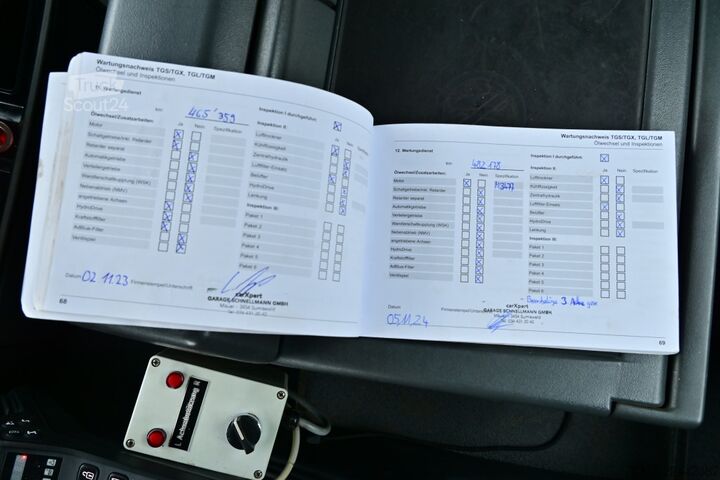 Wartungsnachweis TGS/TGX, TGL/TGM
Ölwechsel und Inspektionen
Truck
Scout24
11. Wartungsdienst
km 465'359
Inspektion I durchgeführt:
Ölwechsel/Zusatzarbeiten: Ja Nein Spezifikation
Motor
Schaltgetriebe/inkl. Retarder
Retarder separat
Automatikgetriebe
Verteilergetriebe
Wandlerschaltkupplung (WSK)
Nebenabtrieb (NMV)
angetriebene Achsen
HydroDrive
Kraftstofffilter
AdBlue-Filter
Ventilspiel
Inspektion II: Ja Nein
Luftfilter
Kühlflüssigkeit
Zentralhydraulik
Luftfilter-Einsatz
Belüfter
HydroDrive
Lenkung
Inspektion III:
Paket 1
Paket 2
Paket 3
Paket 4
Paket 5
Paket 6
Datum 02.11.23 Firmenstempel/Unterschrift
carXpert
GARAGE SCHNELLMANN GMBH
3454 Sumiswald
68
Wartungsnachweis TGS/TGX, TGL/TGM
Ölwechsel und Inspektionen
12. Wartungsdienst
km 482'178
Inspektion I durchgeführt:
Ölwechsel/Zusatzarbeiten: Ja Nein Spezifikation
Motor M3477
Schaltgetriebe/inkl. Retarder
Retarder separat
Automatikgetriebe
Verteilergetriebe
Wandlerschaltkupplung (WSK)
Nebenabtrieb (NMV)
angetriebene Achsen
HydroDrive
Kraftstofffilter
AdBlue-Filter
Ventilspiel
Inspektion II: Ja Nein Spezifikation
Lufttrockner
Kühlflüssigkeit
Zentralhydraulik
Luftfilter-Einsatz
Belüfter
HydroDrive
Lenkung
Inspektion III:
Paket 1
Paket 2
Paket 3
Paket 4
Paket 5
Paket 6
3 Achse
Datum 05.11.24 Firmenstempel/Unterschrift
carXpert
GARAGE SCHNELLMANN GMBH
3454 Sumiswald
69